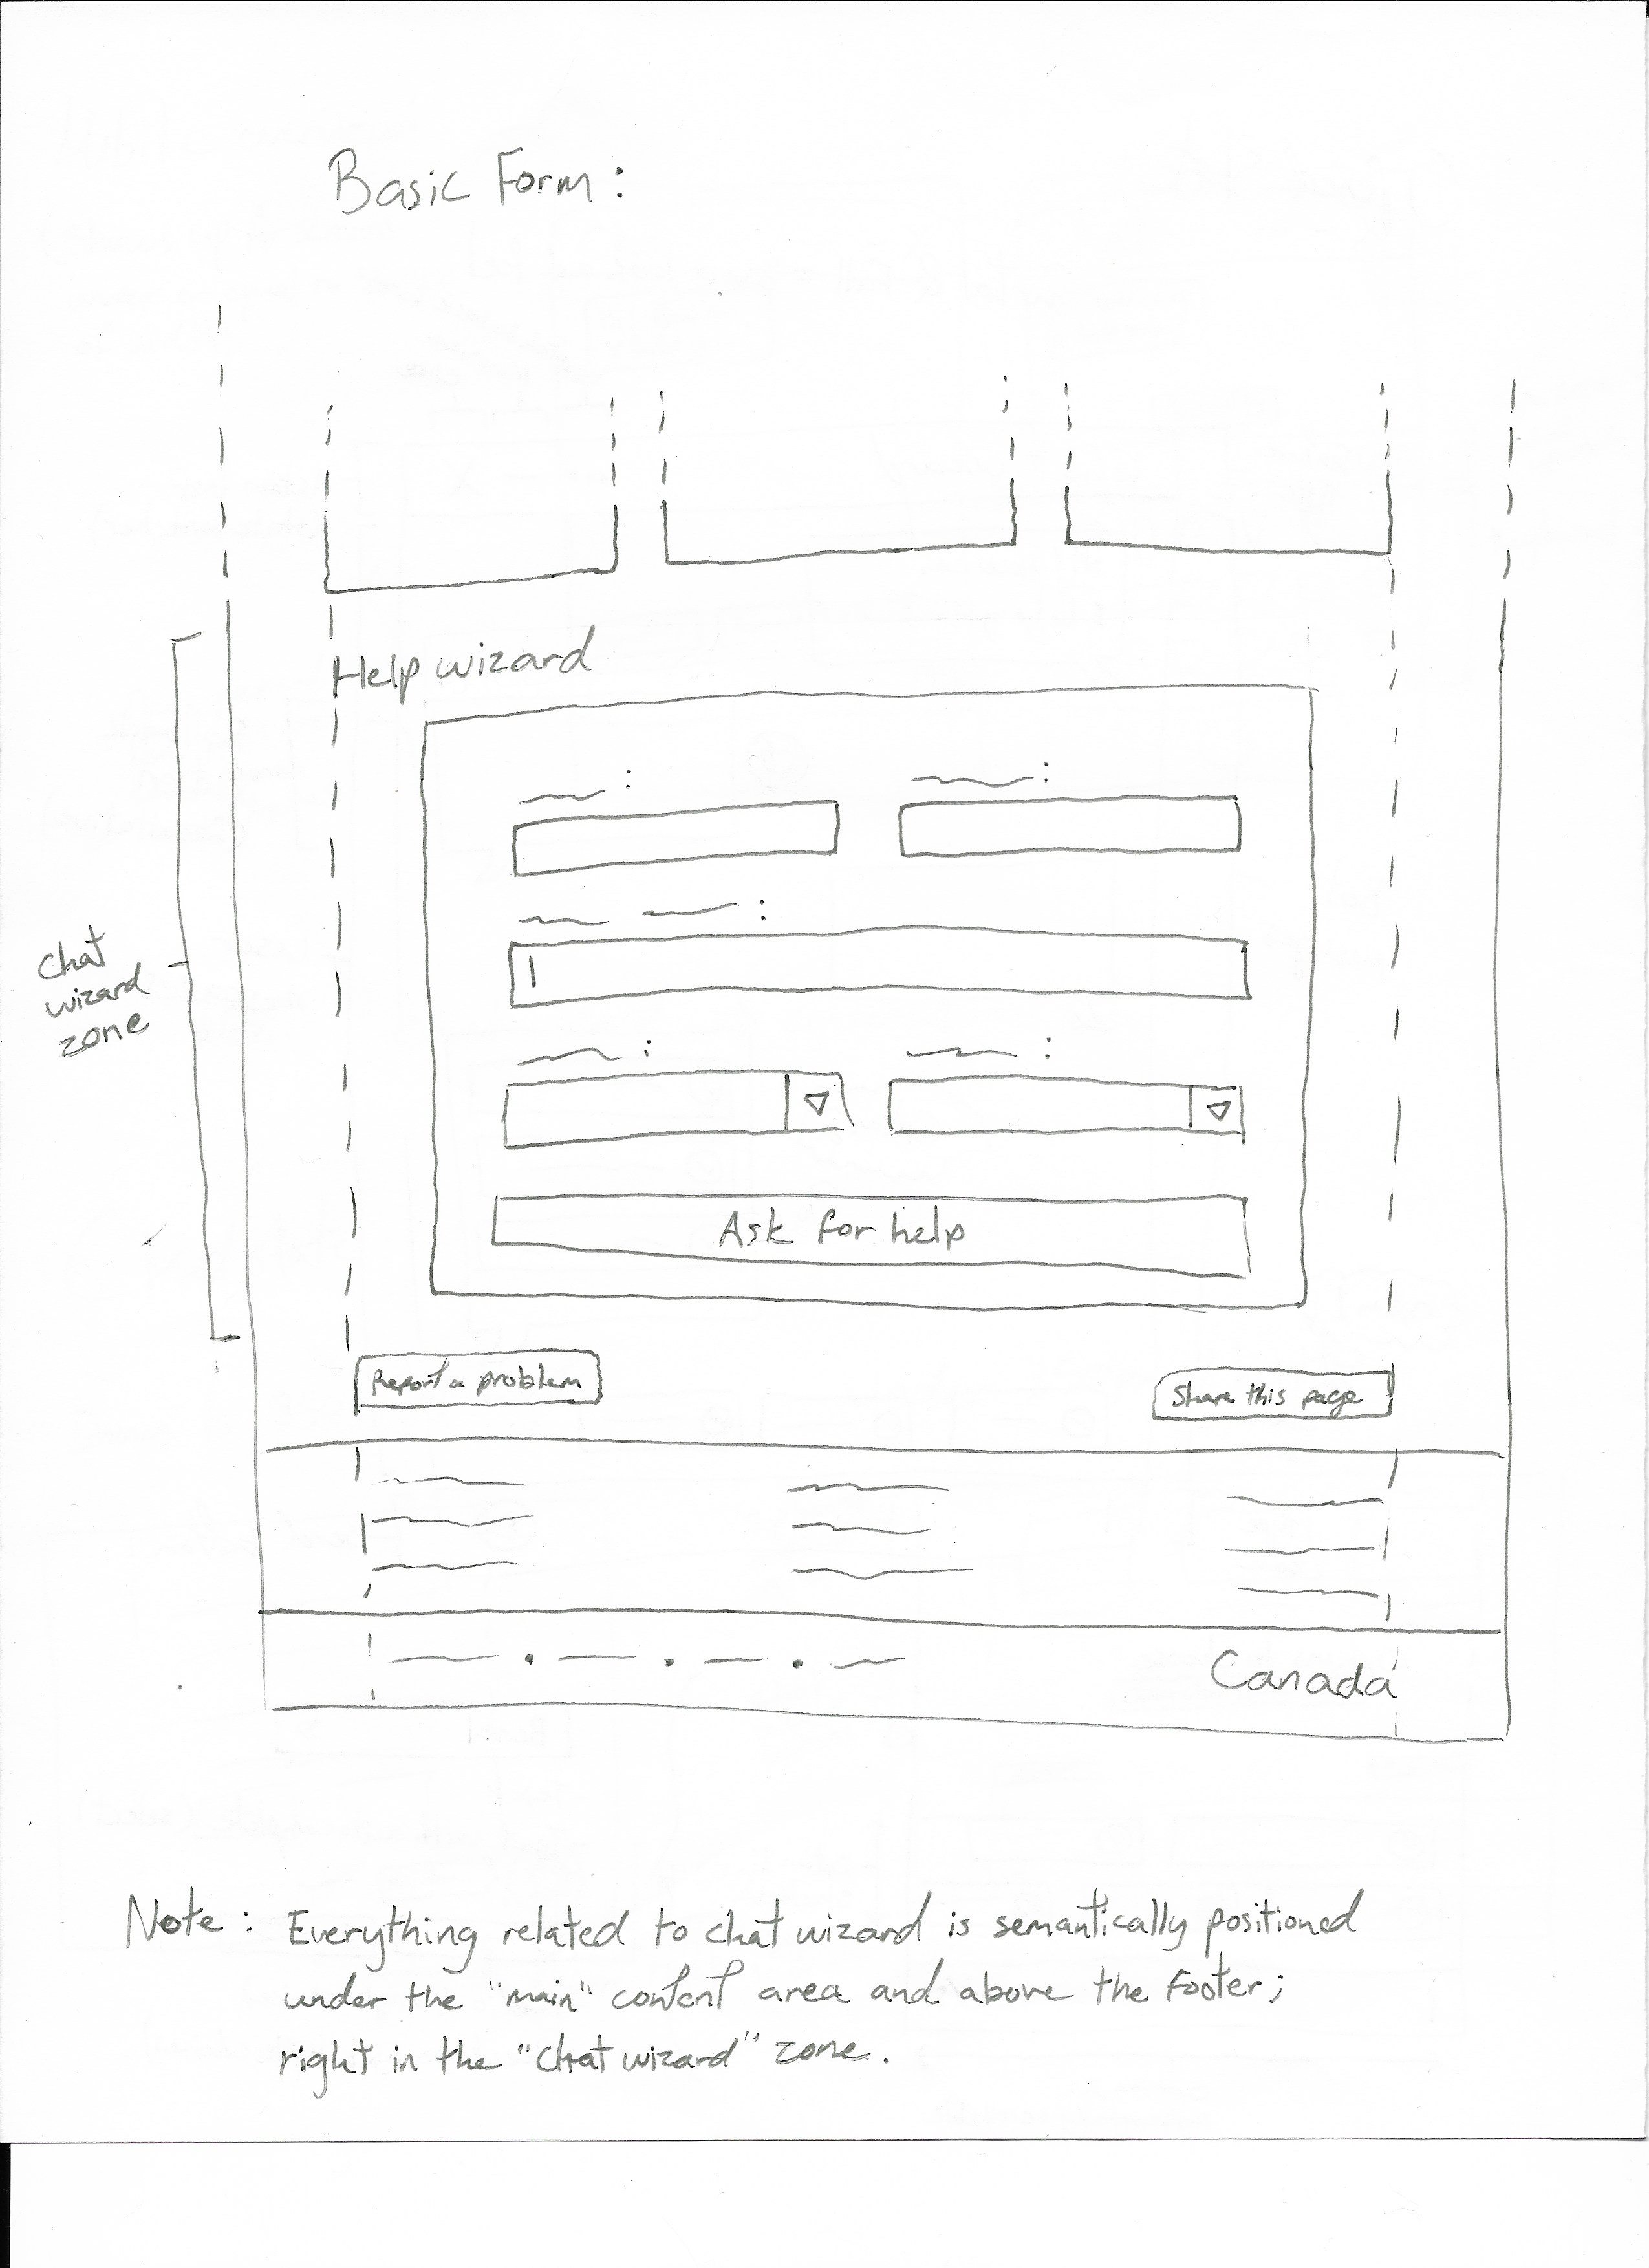 Basic Form:
Help wizard
Chat
wizard
zone
Ask for help
Report a problem
Share this page
Canada
Note: Everything related to chat wizard is semantically positioned
under the "main" content area and above the footer;
right in the "chat wizard" zone.